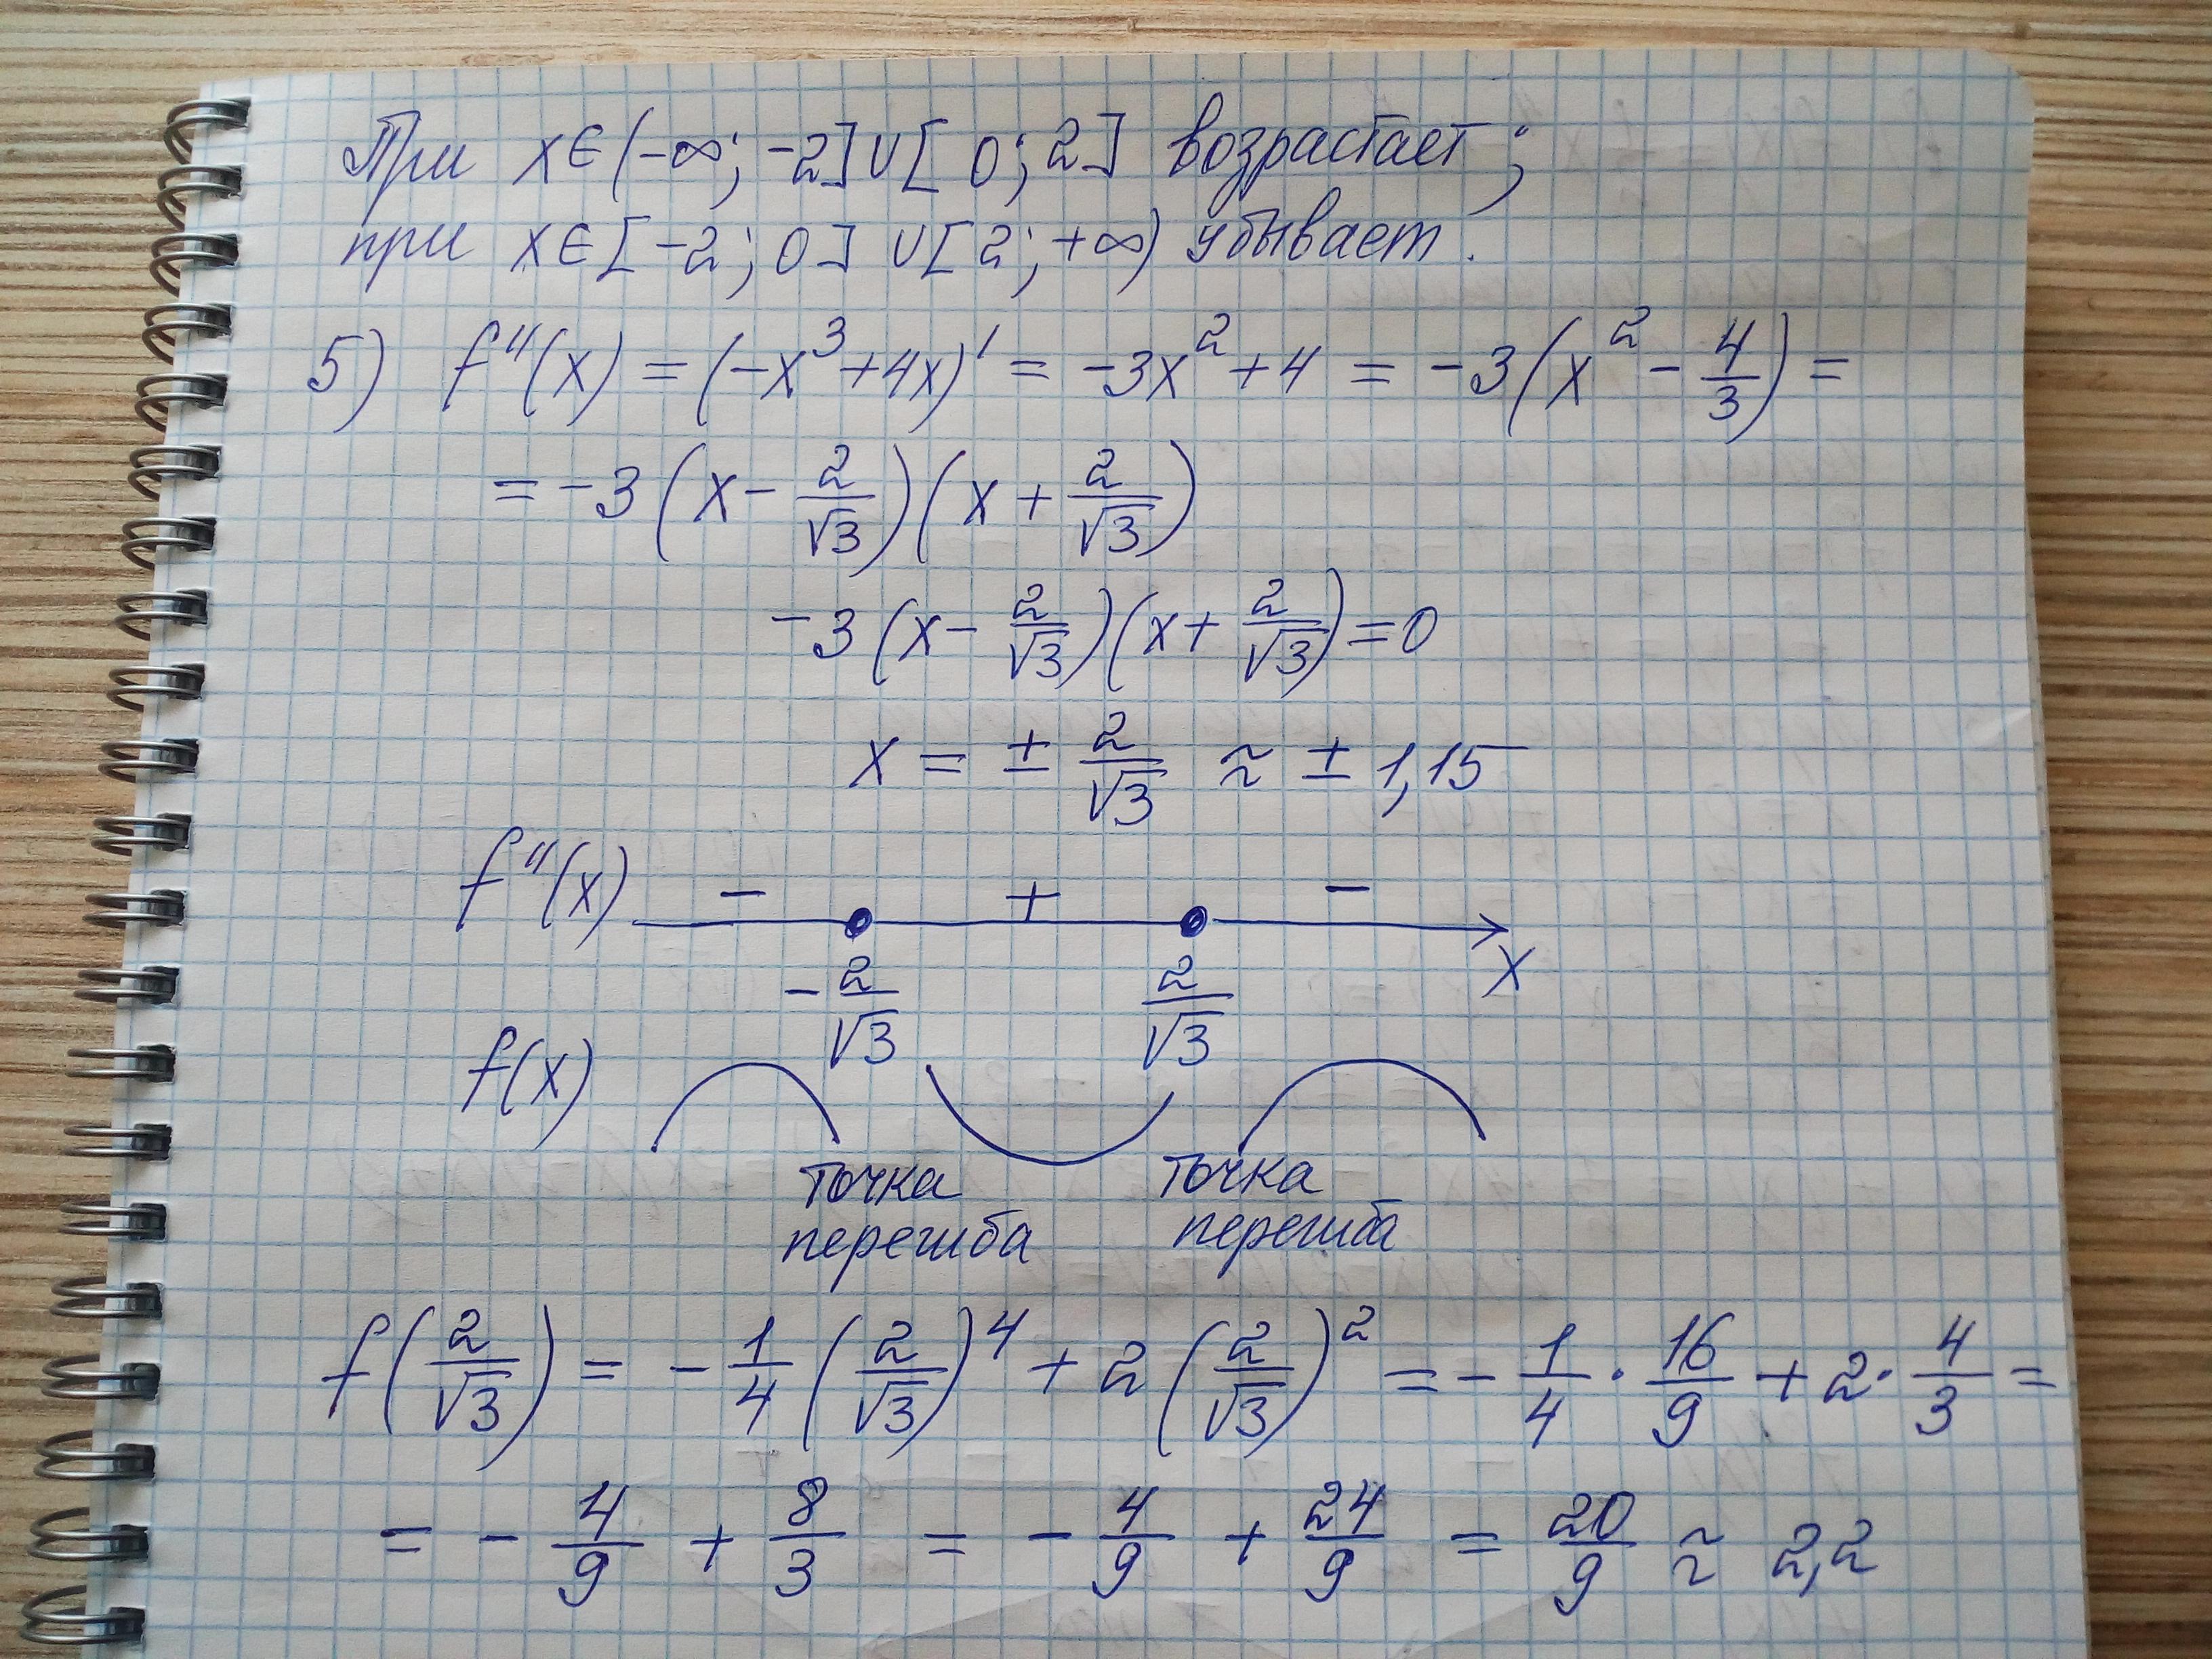 При x∈(-∞; -2]∪[0; 2] возрастает;
при x∈[-2; 0]∪[2; +∞) убывает.
5) f''(x) = (-x³+4x)' = -3x²+4 = -3(x² - 4/3) =
= -3(x - 2/√3)(x + 2/√3)
-3(x - 2/√3)(x + 2/√3) = 0
x = ± 2/√3 ≈ ± 1,15
f''(x) - + - x
-2/√3 2/√3
f(x)
точка точка
перегиба перегиба
f(2/√3) = -1/4(2/√3)⁴ + 2(2/√3)² = -1/4 · 16/9 + 2 · 4/3 =
= -4/9 + 8/3 = -4/9 + 24/9 = 20/9 ≈ 2,2